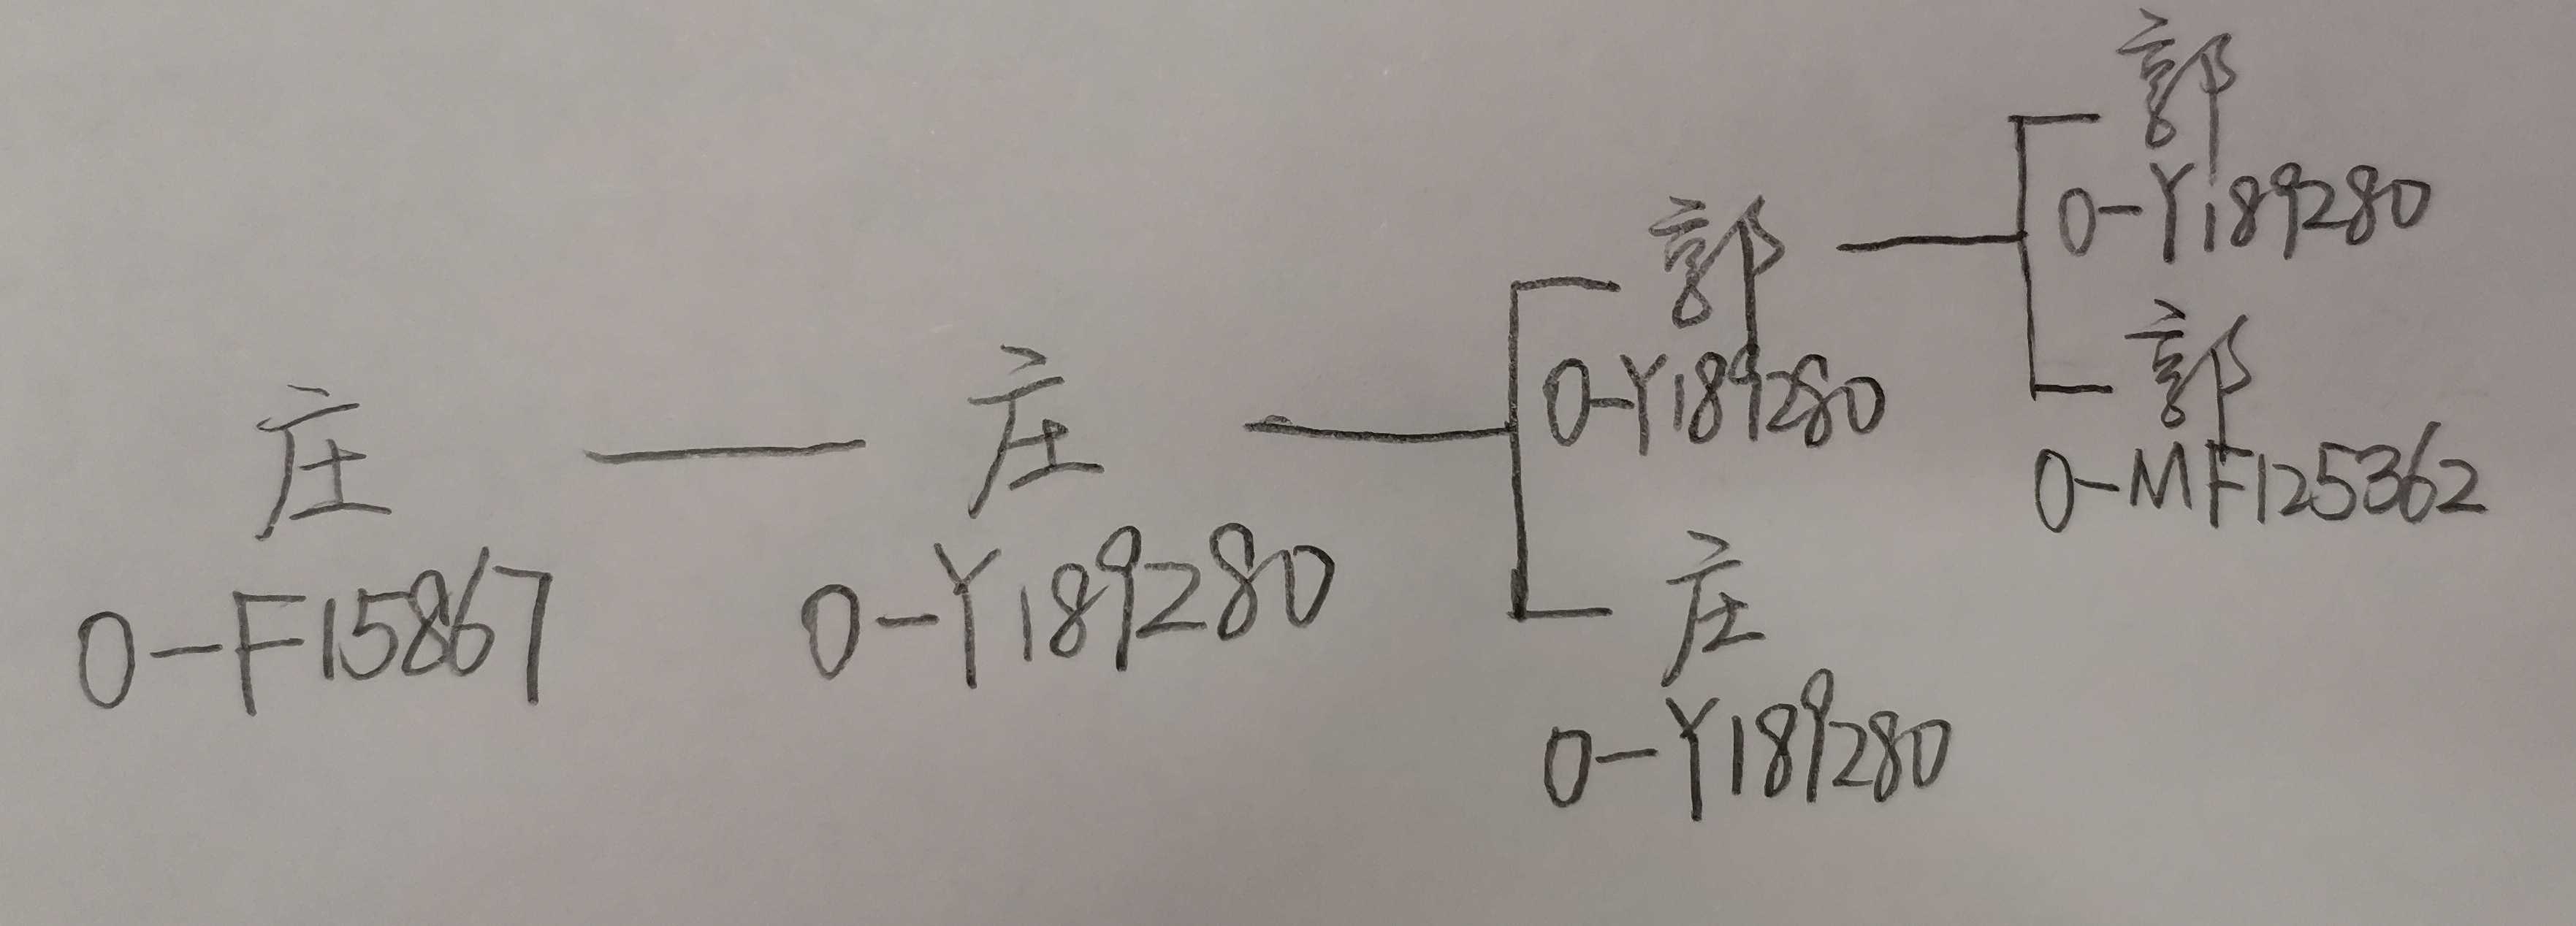 庄
O-F15867
庄
O-Y189280
郭
O-Y189280
庄
O-Y189280
郭
O-Y189280
郭
O-MF125362